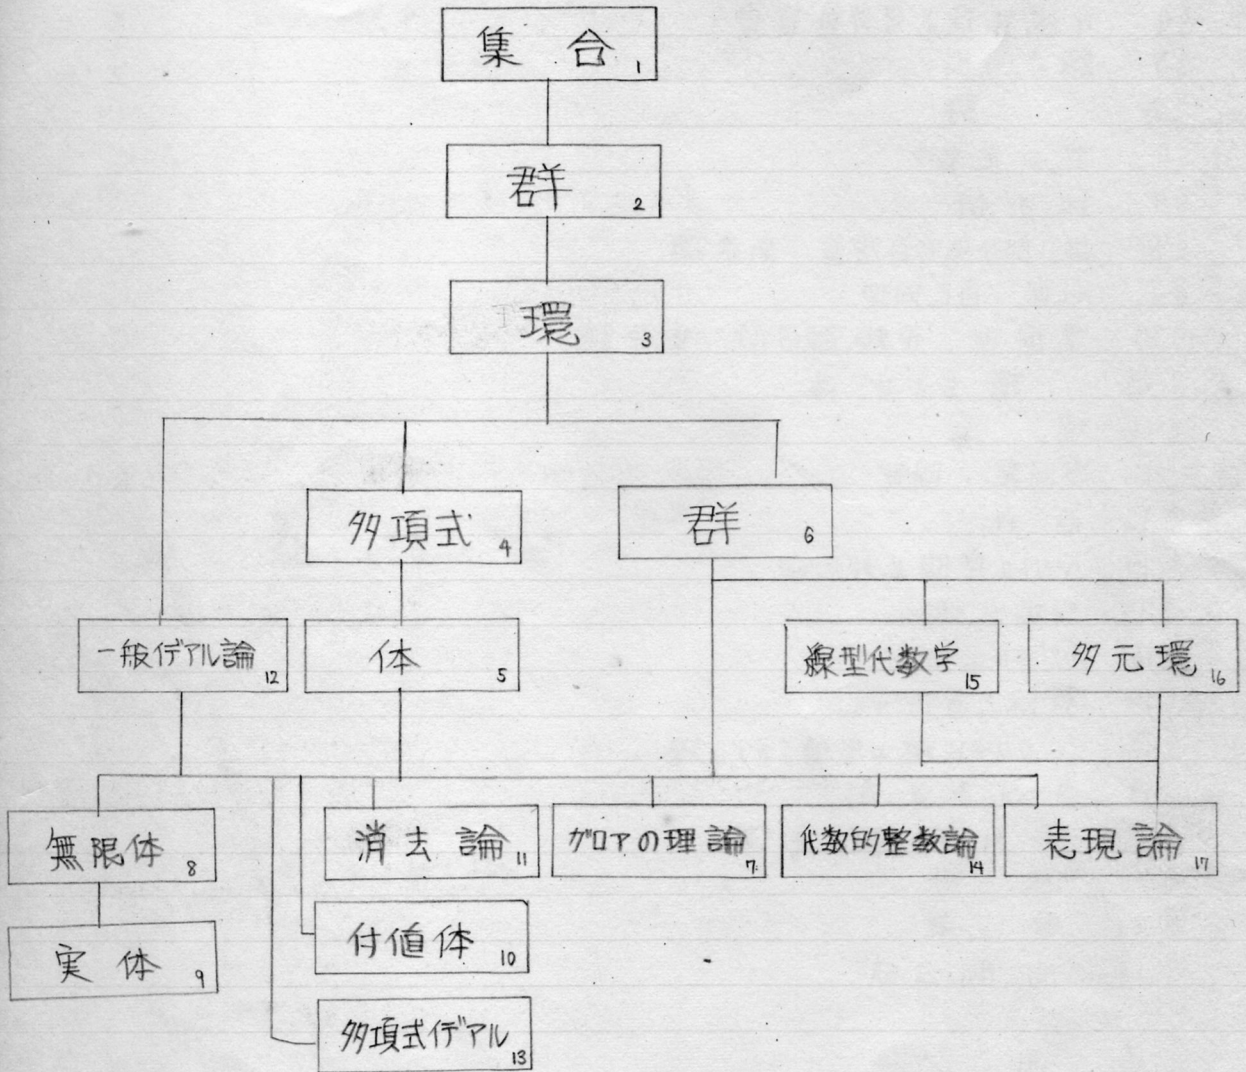 集合 1
群 2
環 3
多項式 4
群 6
一般イデアル論 12
体 5
線型代数学 15
多元環 16
無限体 8
消去論 11
ガロアの理論 7
代数的整数論 14
表現論 17
付値体 10
実体 9
多項式イデアル 13